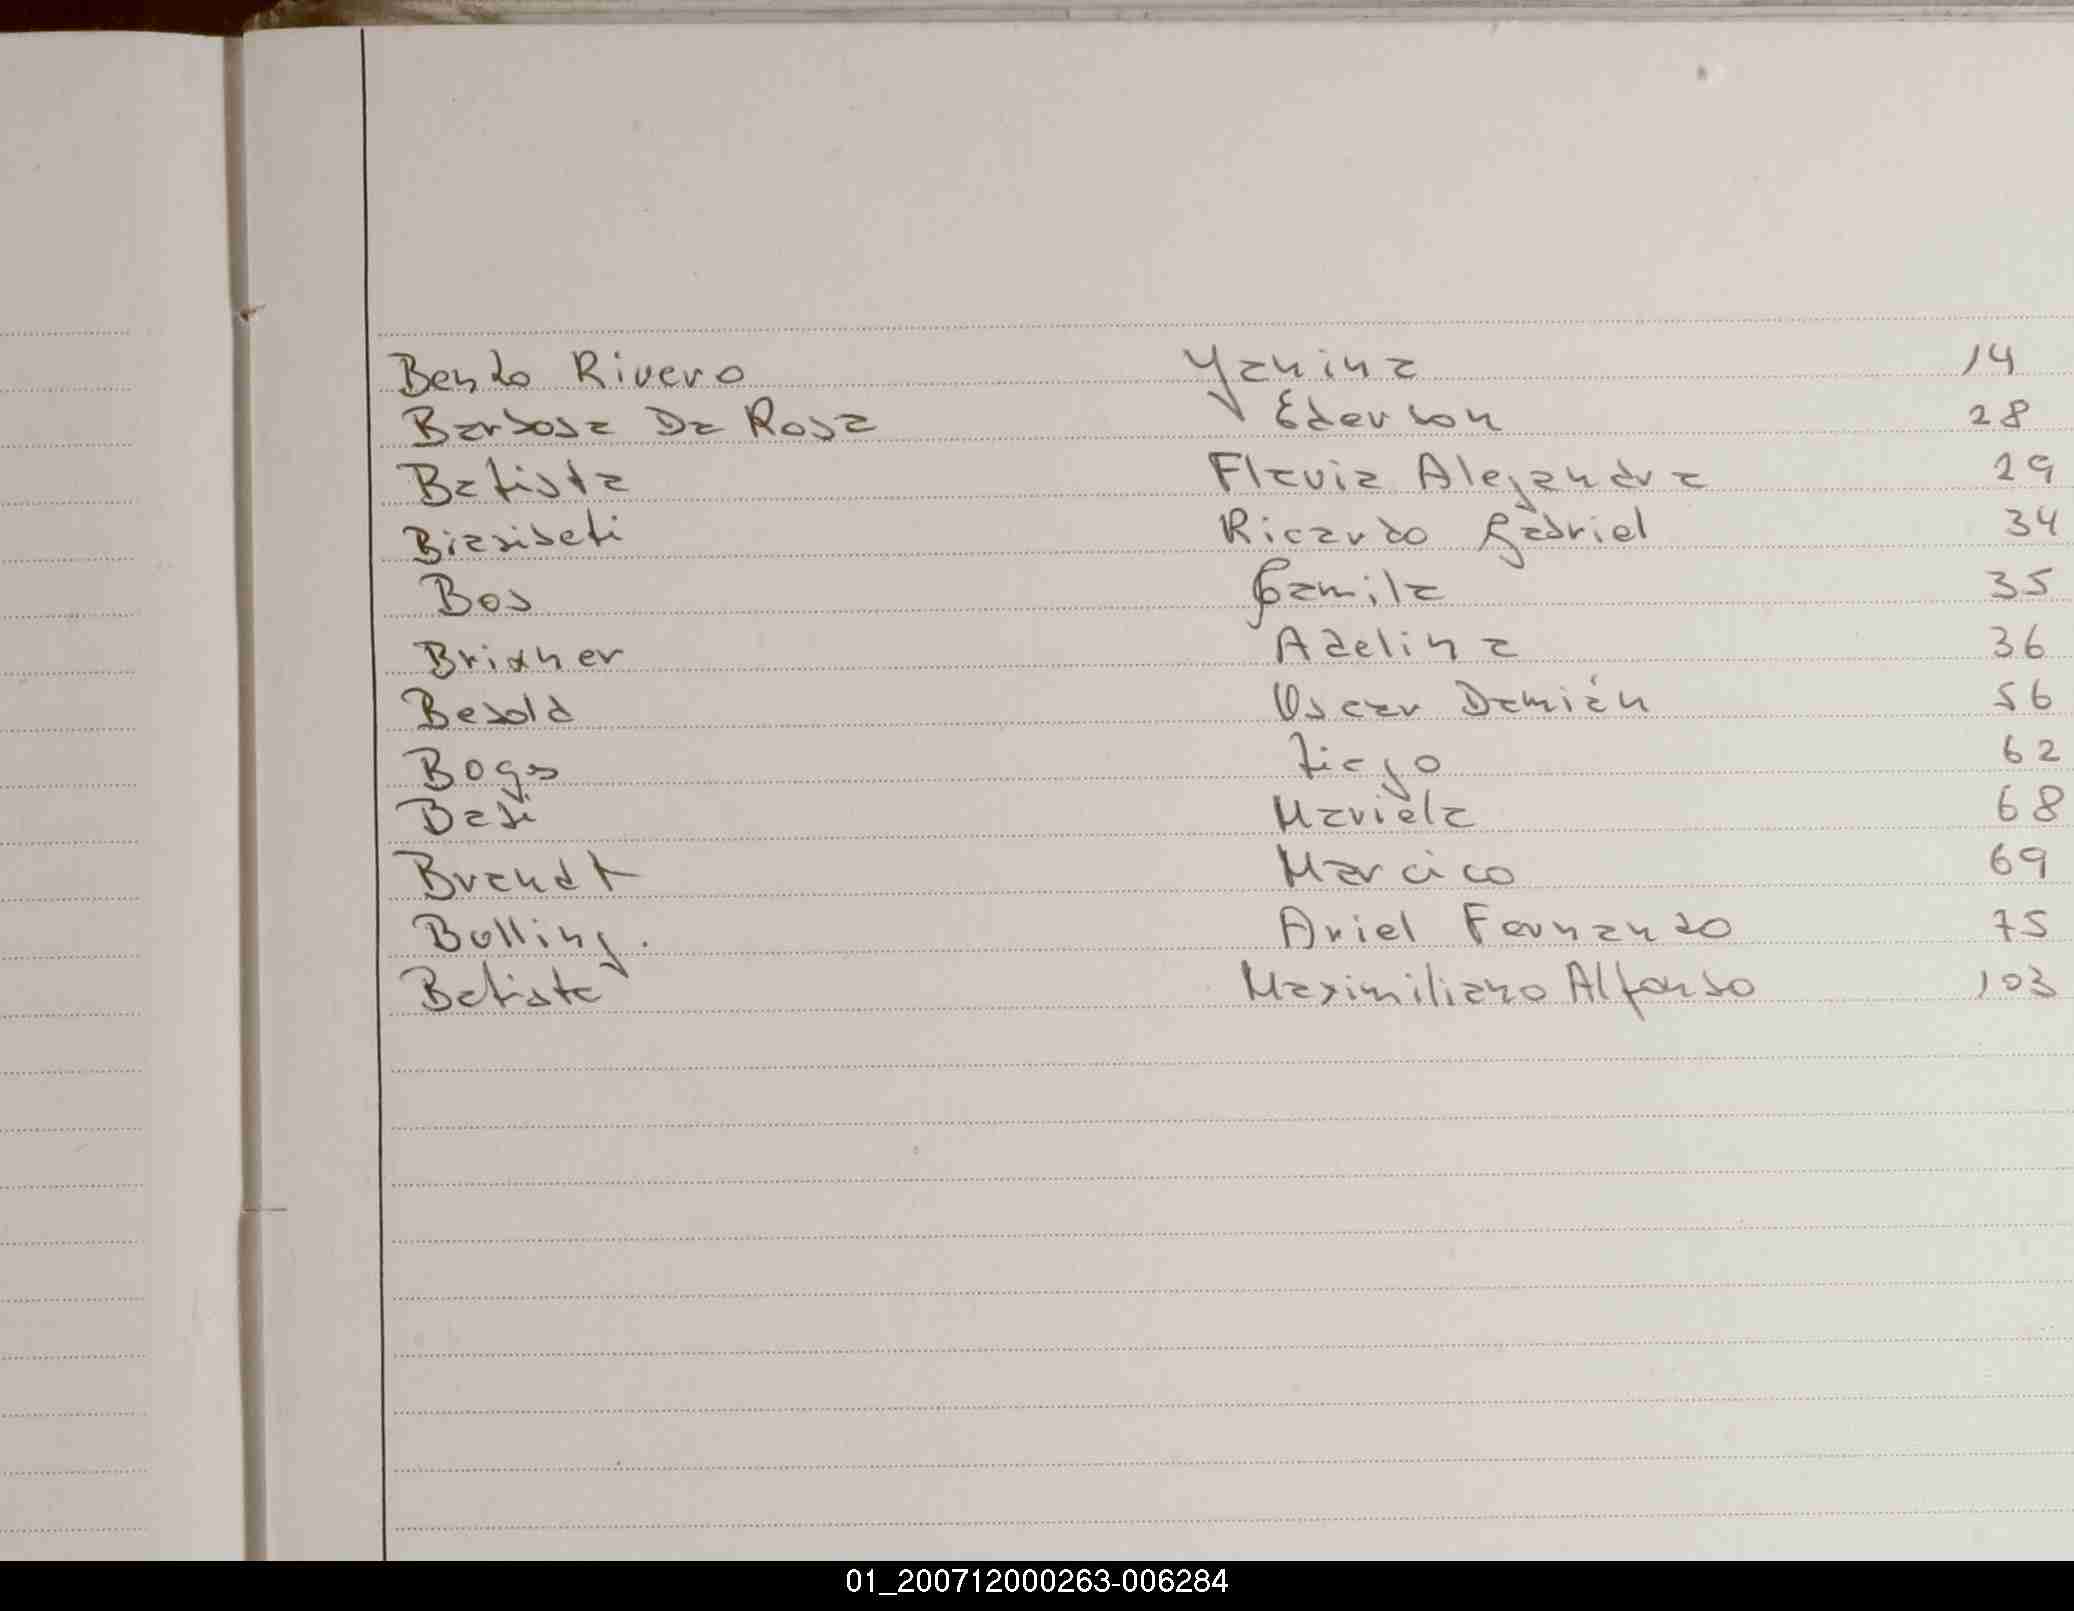 Bento Rivero Yanina 14
Barbosa Da Rosa Ederson 28
Batista Flavia Alejandra 29
Ricardo Gabriel 34
Bos Camila 35
Brixner Adelina 36
Besold Oscar Damián 56
Bogs Diego 62
Basi Mariela 68
Brandt Marcico 69
Bolling. Ariel Fernando 75
Batista Maximiliano Alfonso 103
01_200712000263-006284